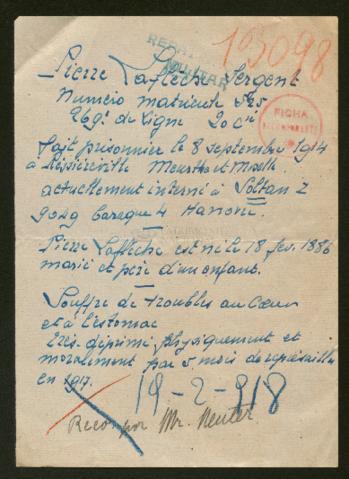 103098
REPAT
MILITAR
Pierre Laflèche Sergent
Numéro matricule 525
Rég. de ligne 20 Cie
fait prisonnier le 8 septembre 1914
à Meurthe et Moselle
actuellement interné à Soltau Z
9029 baraque 4 Hanovre
FICHA
Pierre Laflèche est né le 18 fev. 1886
marié et père d'un enfant.
Souffre de troubles au Cœur
et à l'estomac
très déprimé, physiquement et
moralement par 5 mois de represailles
en 1917.
19-2-918
Recom. por Mr. Neuter